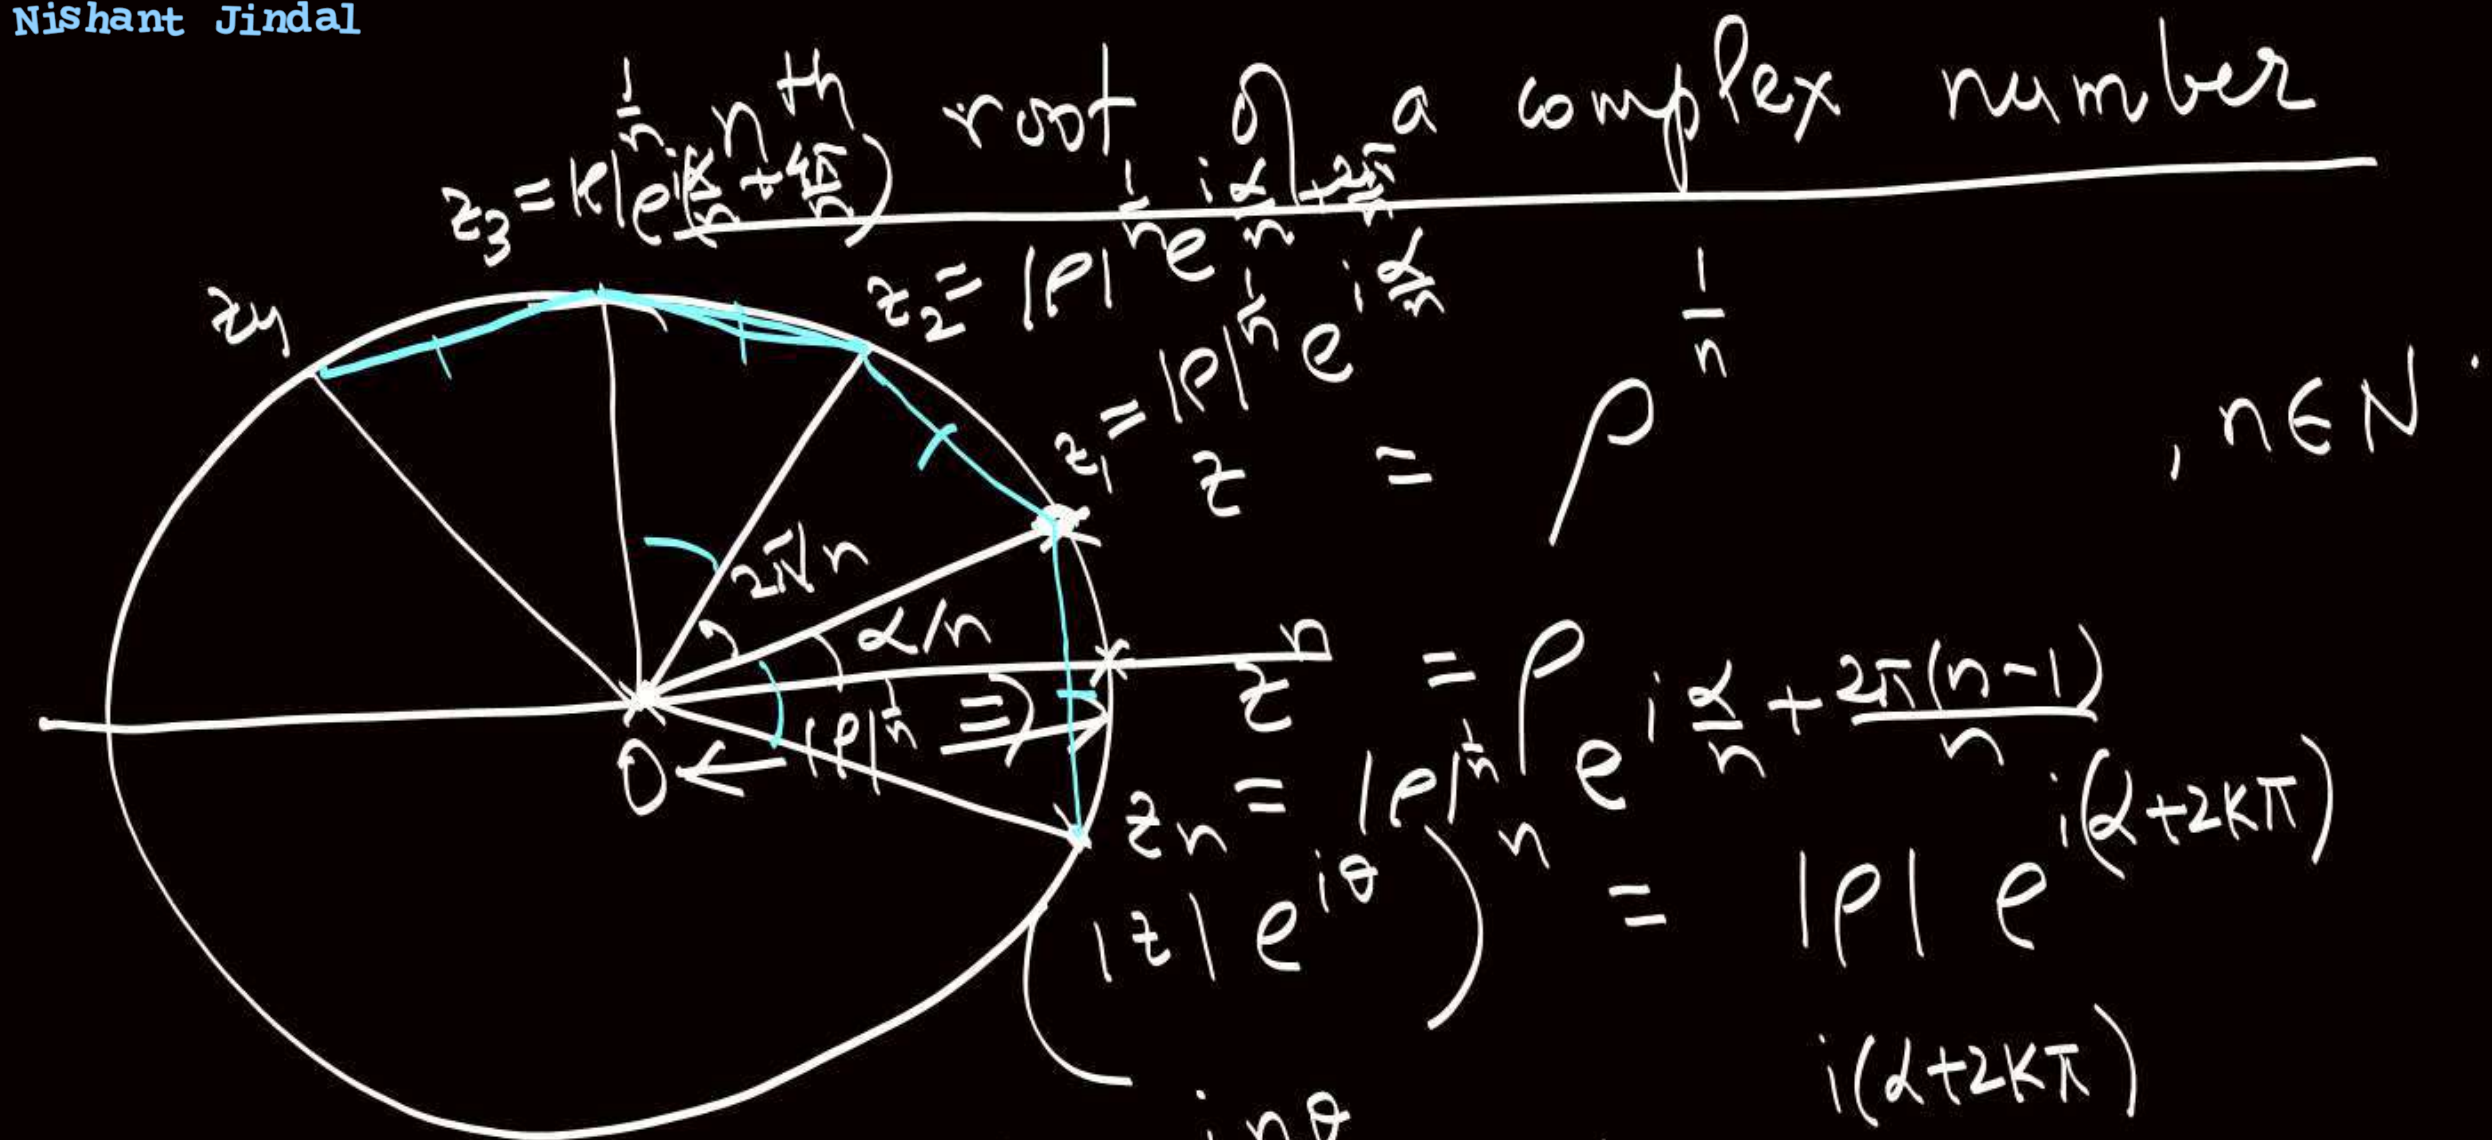 Nishant Jindal
nth root of a complex number
z3 = |ρ|^(1/n) e^(i(α/n + 4π/n))
z2 = |ρ|^(1/n) e^(i α/n + 2π/n)
z1 = |ρ|^(1/n) e^(i α/n)
z4
z = ρ^(1/n) , n ∈ N.
2π/n
α/n
z^n = ρ
O ← |ρ|^(1/n) ⇒
zn = |ρ|^(1/n) e^(i α/n + 2π(n-1)/n)
(|z| e^(iθ))^n = |ρ| e^(i(α+2kπ))
inθ
i(α+2kπ)